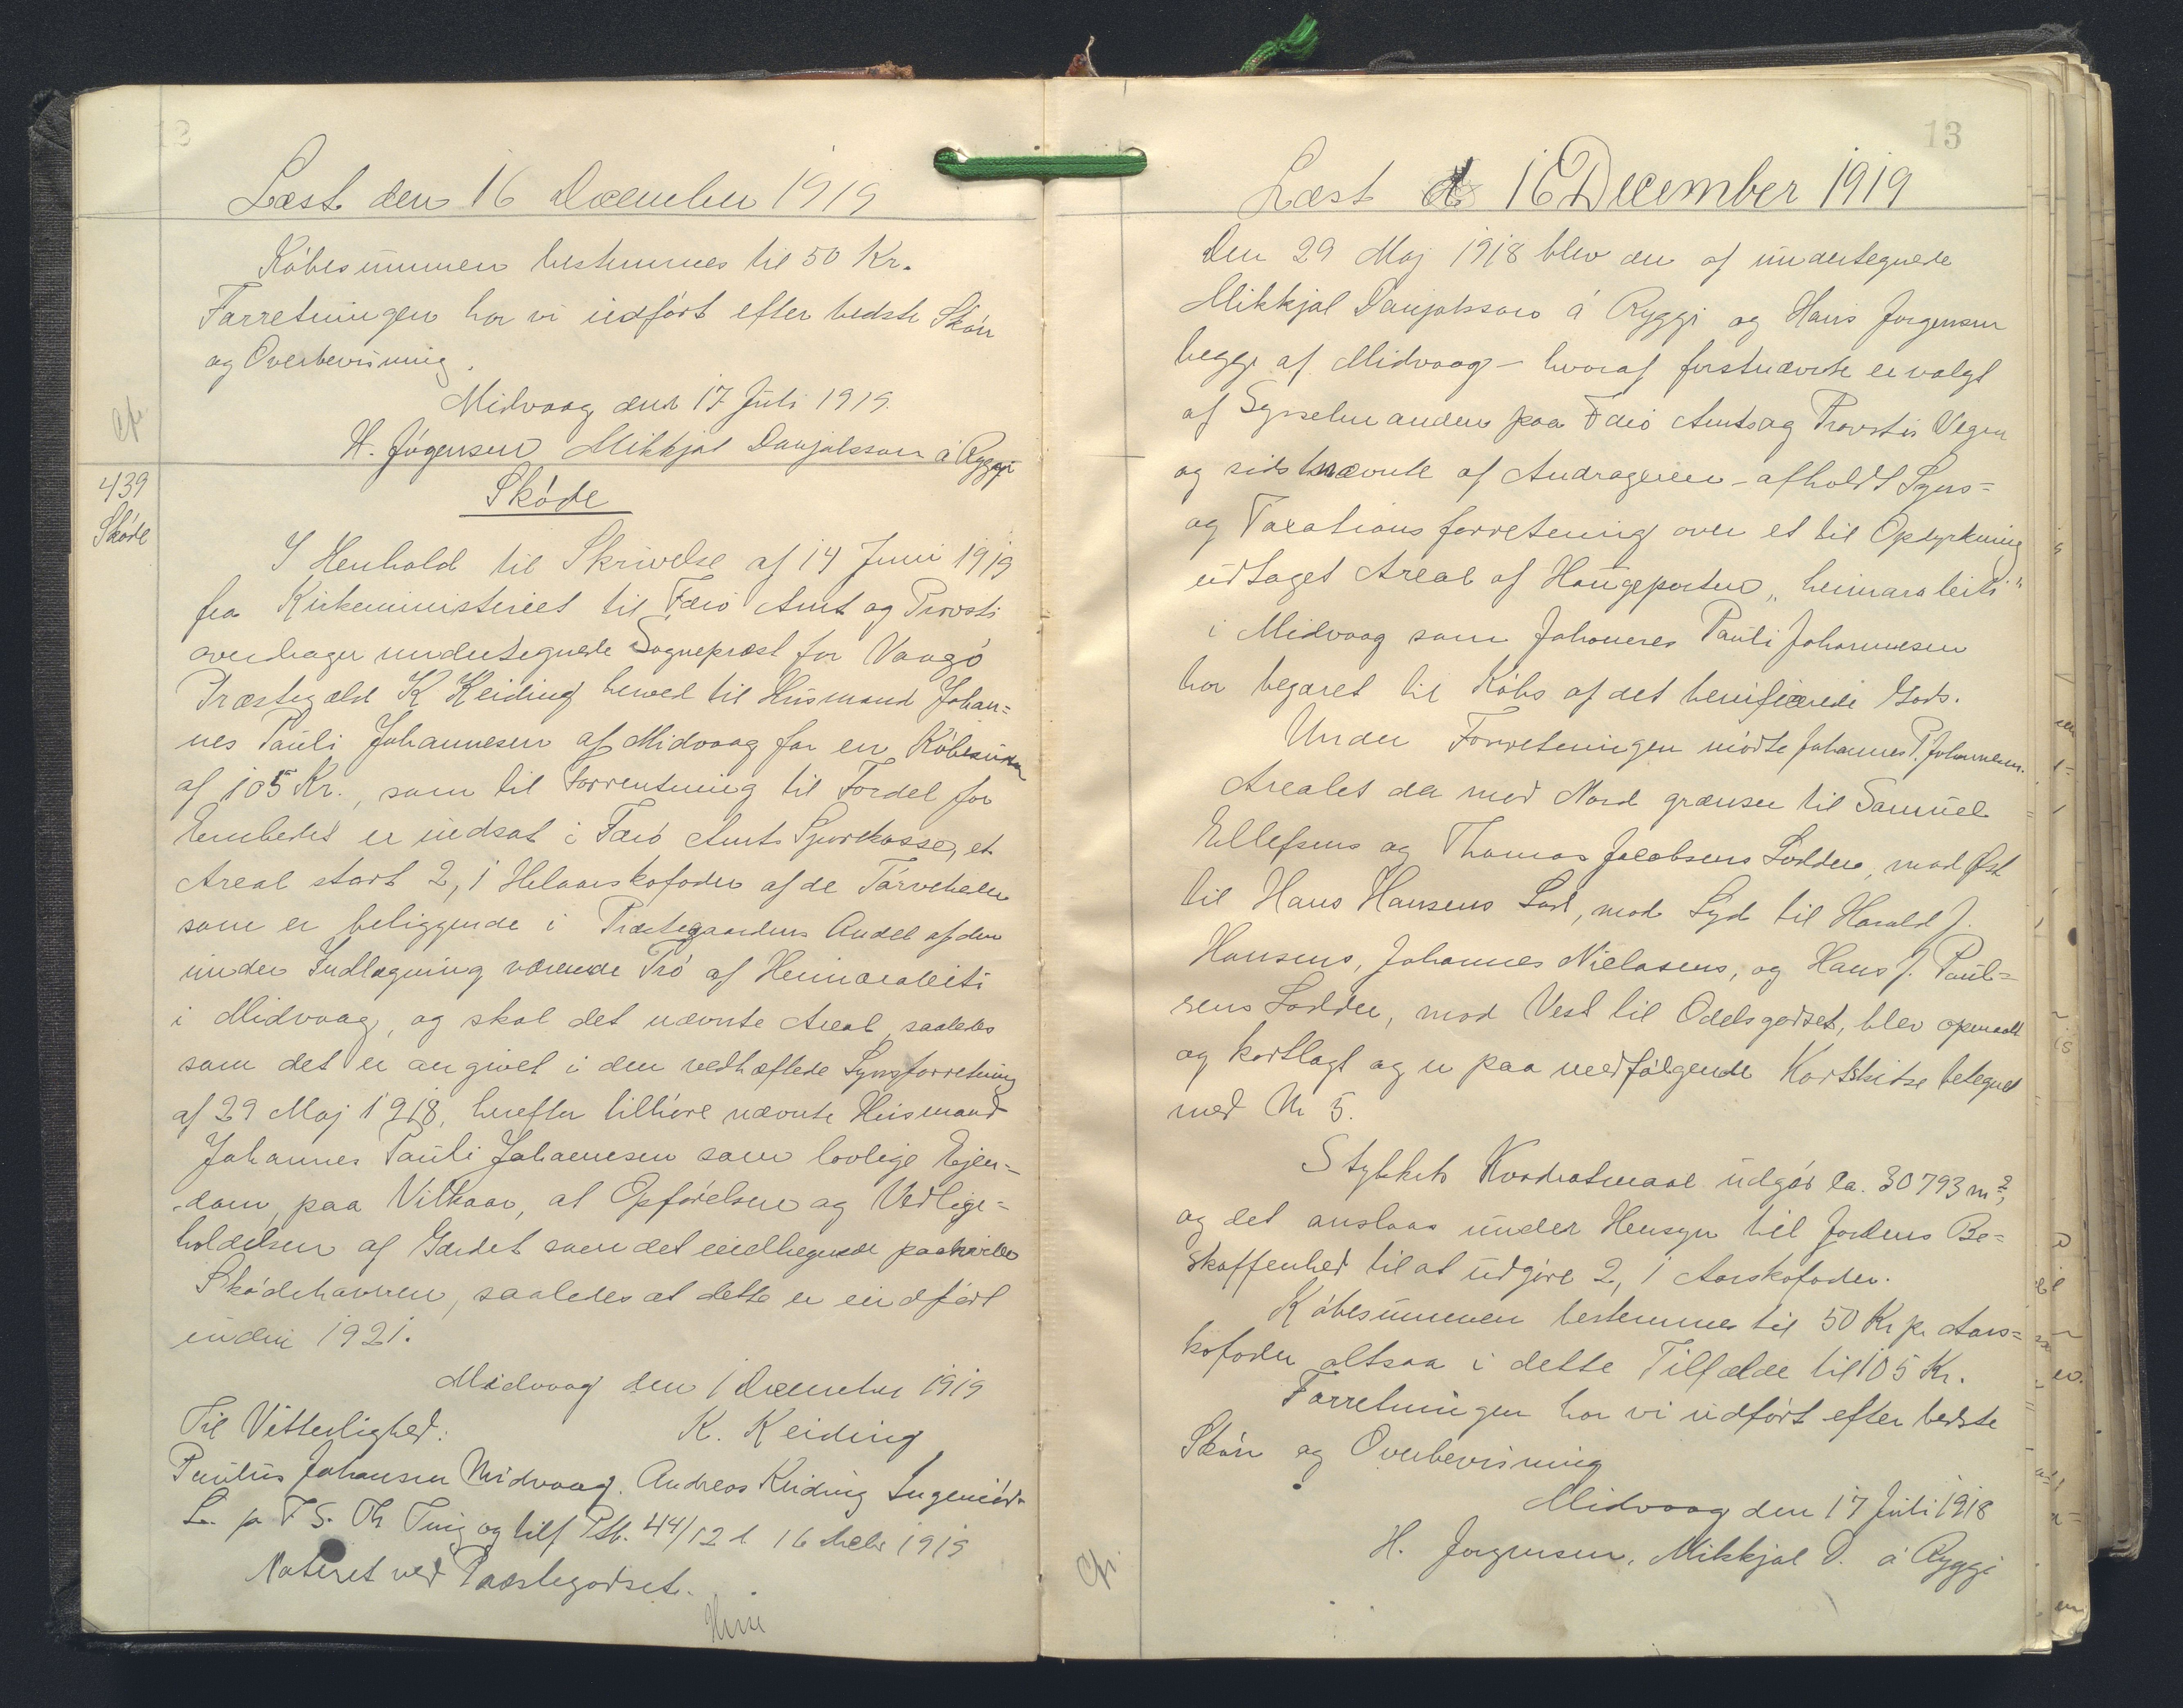 Læst den 16 December 1919
Købesummen bestemmes til 50 Kr.
Forretningen har vi udført efter bedste Skøn
og Overbevisning.
Midvaag den 17 Juli 1919.
H. Jögensen Mikkjal Danjalsson á Ryggi
439
Skøde
Skøde
I Henhold til Skrivelse af 14 Juni 1919
fra Kirkeministeriet til Færø Amt og Provsti
overdrager undertegnede Sognepræst for Vaagø
Præstegæld K Keiding herved til Husmand Johan=
nes Pauli Johannesen af Midvaag for en Købesum
af 105 Kr., som til Forrentning til Fordel for
Embedet er indsat i Færø Amts Sparekasse, et
Areal stort 2,1 Helaarskofoder af de Tørvehede
som er beliggende i Præstegaardens Andel af den
under Indlægning værende Trø af Heimaraleiti
i Midvaag, og skal det nævnte Areal, saaledes
som det er angivet i den vedhæftede Synsforretning
af 29 Maj 1918, herefter tilhøre nævnte Husmand
Johannes Pauli Johannesen som lovlige Ejen=
dom, paa Vilkaar, at Opførelsen og Vedlige=
holdelsen af Gærdet som det indhegnede paahviler
Skødehaveren, saaledes at dette er indført
inden 1921.
Midvaag den 1 December 1919
Til Vitterlighed: K. Keiding
Paulus Johansen Midvaag. Andreas Keiding Ingeniør
L. p. F S. Th Ting og tilf Ptk. 44/12 d 16 Decbr 1919
Noteret ved Præstegodset.
13
Læst d 16 December 1919
Den 29 Maj 1918 blev den af undertegnede
Mikkjal Danjalsson á Ryggi og Hans Jørgensen
begge af Midvaag – hvoraf førstnævnte er valgt
af Sysselmanden paa Færø Amts og Provstis Vegne
og sidstnævnte af Andrageren – afholdt Syns=
og Taxationsforretning over et til Opdyrkning
udtaget Areal af Haugeparten "heimaraleiti"
i Midvaag som Johannes Pauli Johannesen
har begæret til Købs af det benificerede Gods.
Under Forretningen mødte Johannes P. Johannesen.
Arealet der mod Nord grænser til Samuel
Ellefsens og Thomas Jacobsens Lodder, mod Øst
til Hans Hansens Lod, mod Syd til Harald J.
Hansens, Johannes Nielasens, og Hans J. Paul=
sens Lodder, mod Vest til Odelsgodset, blev opmaalt
og kortlagt og er paa medfølgende Kortskitse betegnet
med Nr 5.
Stykkets Kvadratmaal udgør ca. 30793 m²,
og det anslaas under Hensyn til Jordens Be=
skaffenhed til at udgøre 2,1 Aarskofoder.
Købesummen bestemmes til 50 Kr pr. Aars=
kofoder altsaa i dette Tilfælde til 105 Kr.
Forretningen har vi udført efter bedste
Skøn og Overbevisning
Midvaag den 17 Juli 1918
H. Jørgensen, Mikkjal D. á Ryggi